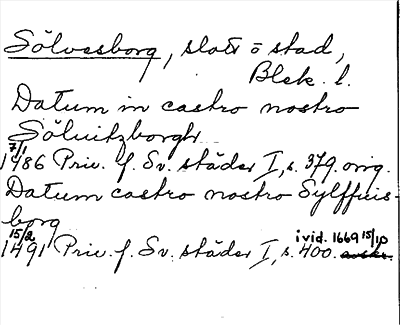 Sölvesborg, slott o stad,
Blek. l.
Datum in castro nostro
Sölvitzborgh
7/1
1486 Priv. f. Sv. städer I, s. 379. orig.
Datum castro nostro Sylffuis-
borg
15/2 ivid. 1669 15/10
1491 Priv. f. Sv. städer I, s. 400.